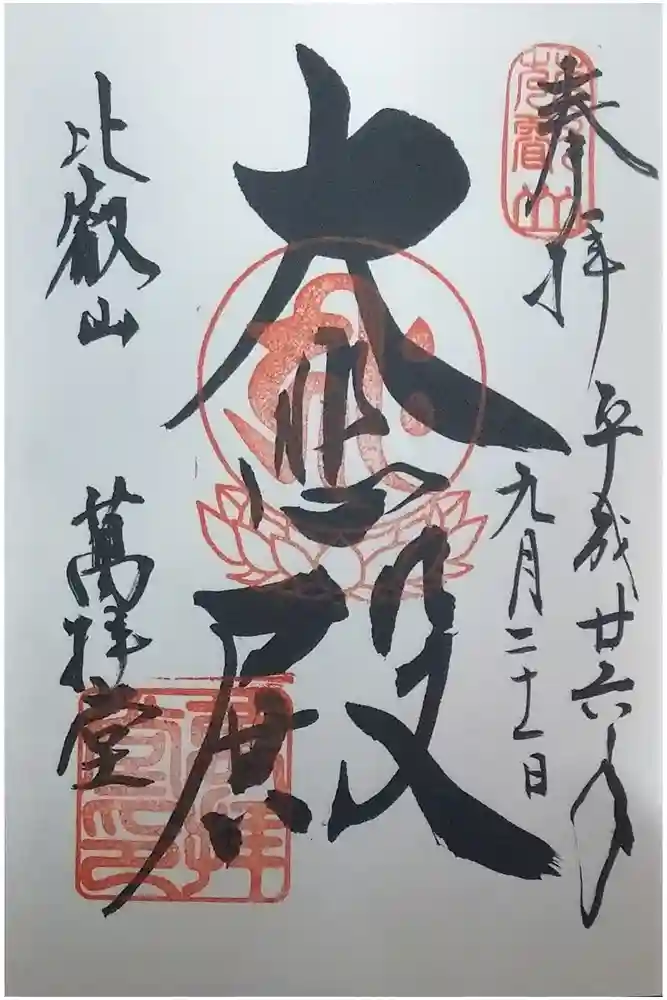 奉拝
平成廿六年
九月二十一日
大悲殿
比叡山
萬拝堂
萬拝堂印